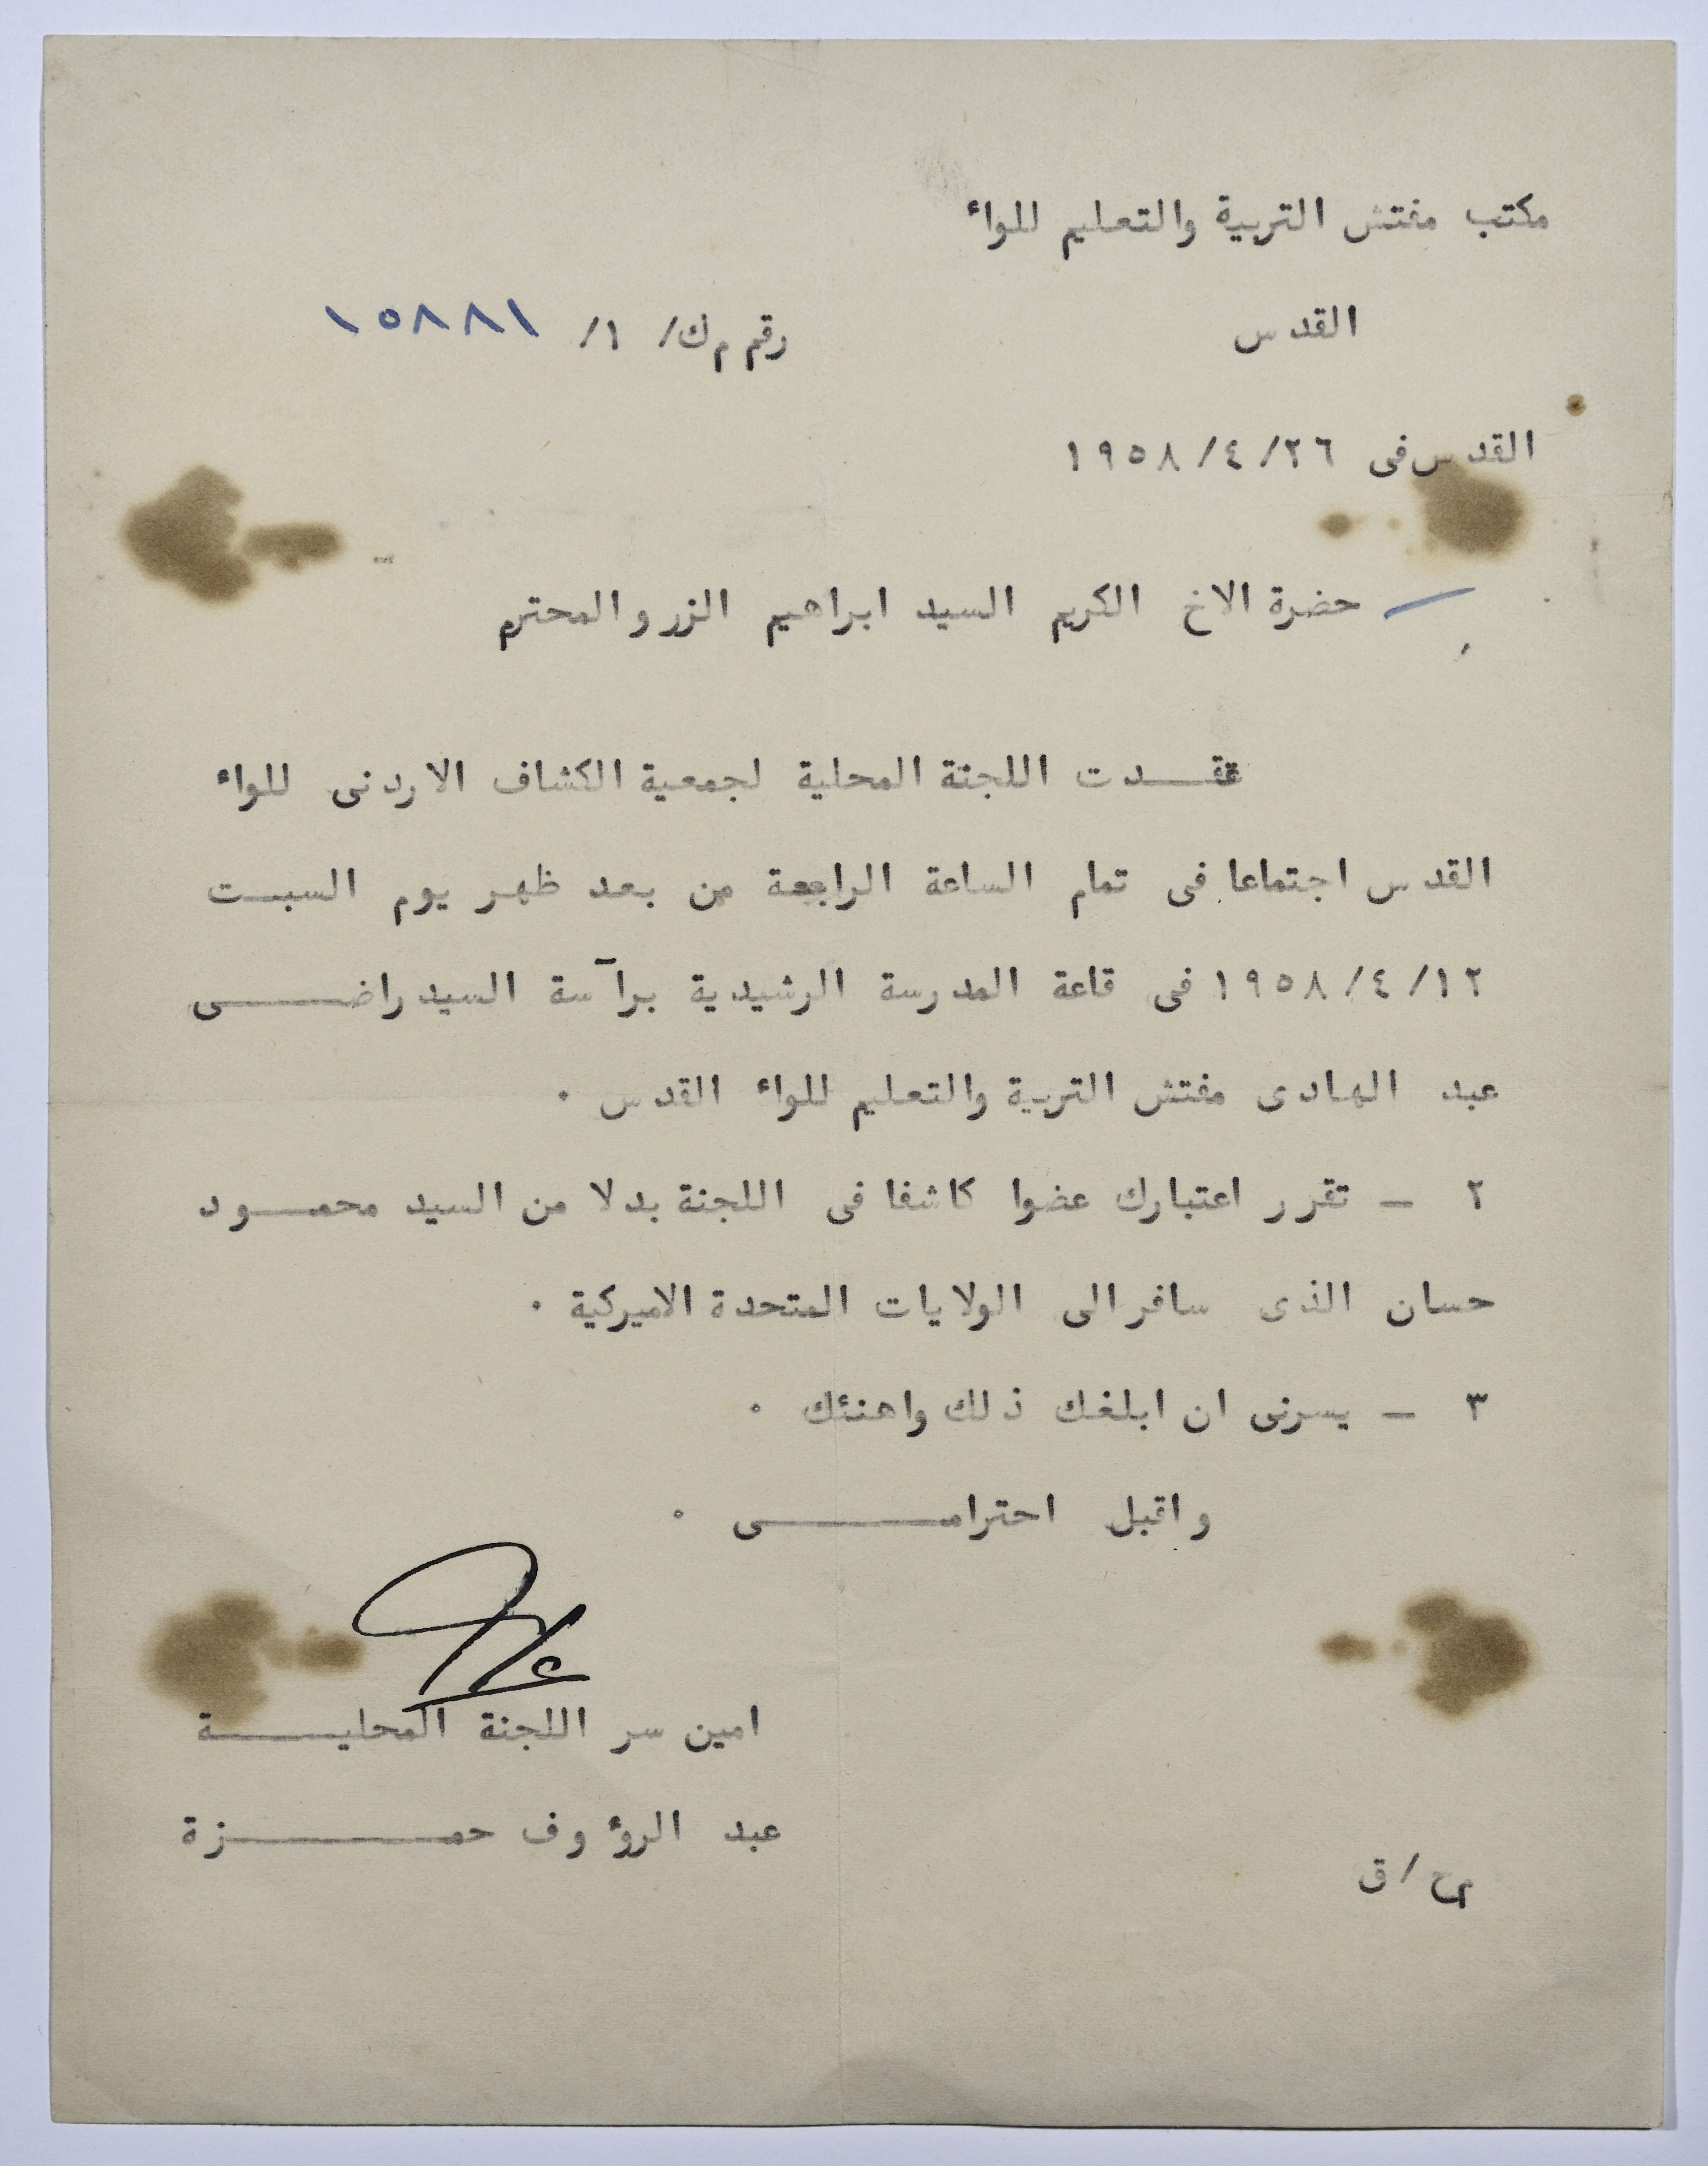 مكتب مفتش التربية والتعليم للواء
القدس
رقم م ك/ ١/ ١٥٨٨١
القدس فى ٢٦/ ٤/ ١٩٥٨
حضرة الاخ الكريم السيد ابراهيم الزرو المحترم
عقـــدت اللجنة المحلية لجمعية الكشاف الاردنى للواء
القدس اجتماعا فى تمام الساعة الرابعة من بعد ظهر يوم السبت
١٢/ ٤/ ١٩٥٨ فى قاعة المدرسة الرشيدية برآسة السيد راضـــــى
عبد الهادى مفتش التربية والتعليم للواء القدس ٠
٢ - تقرر اعتبارك عضوا كاشفا فى اللجنة بدلا من السيد محمـــود
حسان الذى سافر الى الولايات المتحدة الاميركية ٠
٣ - يسرنى ان ابلغك ذلك واهنئك ٠
واقبل احترامـــــــى ٠
امين سر اللجنة المحليـــــة
عبد الرؤوف حمـــــــــزة
مح / ق